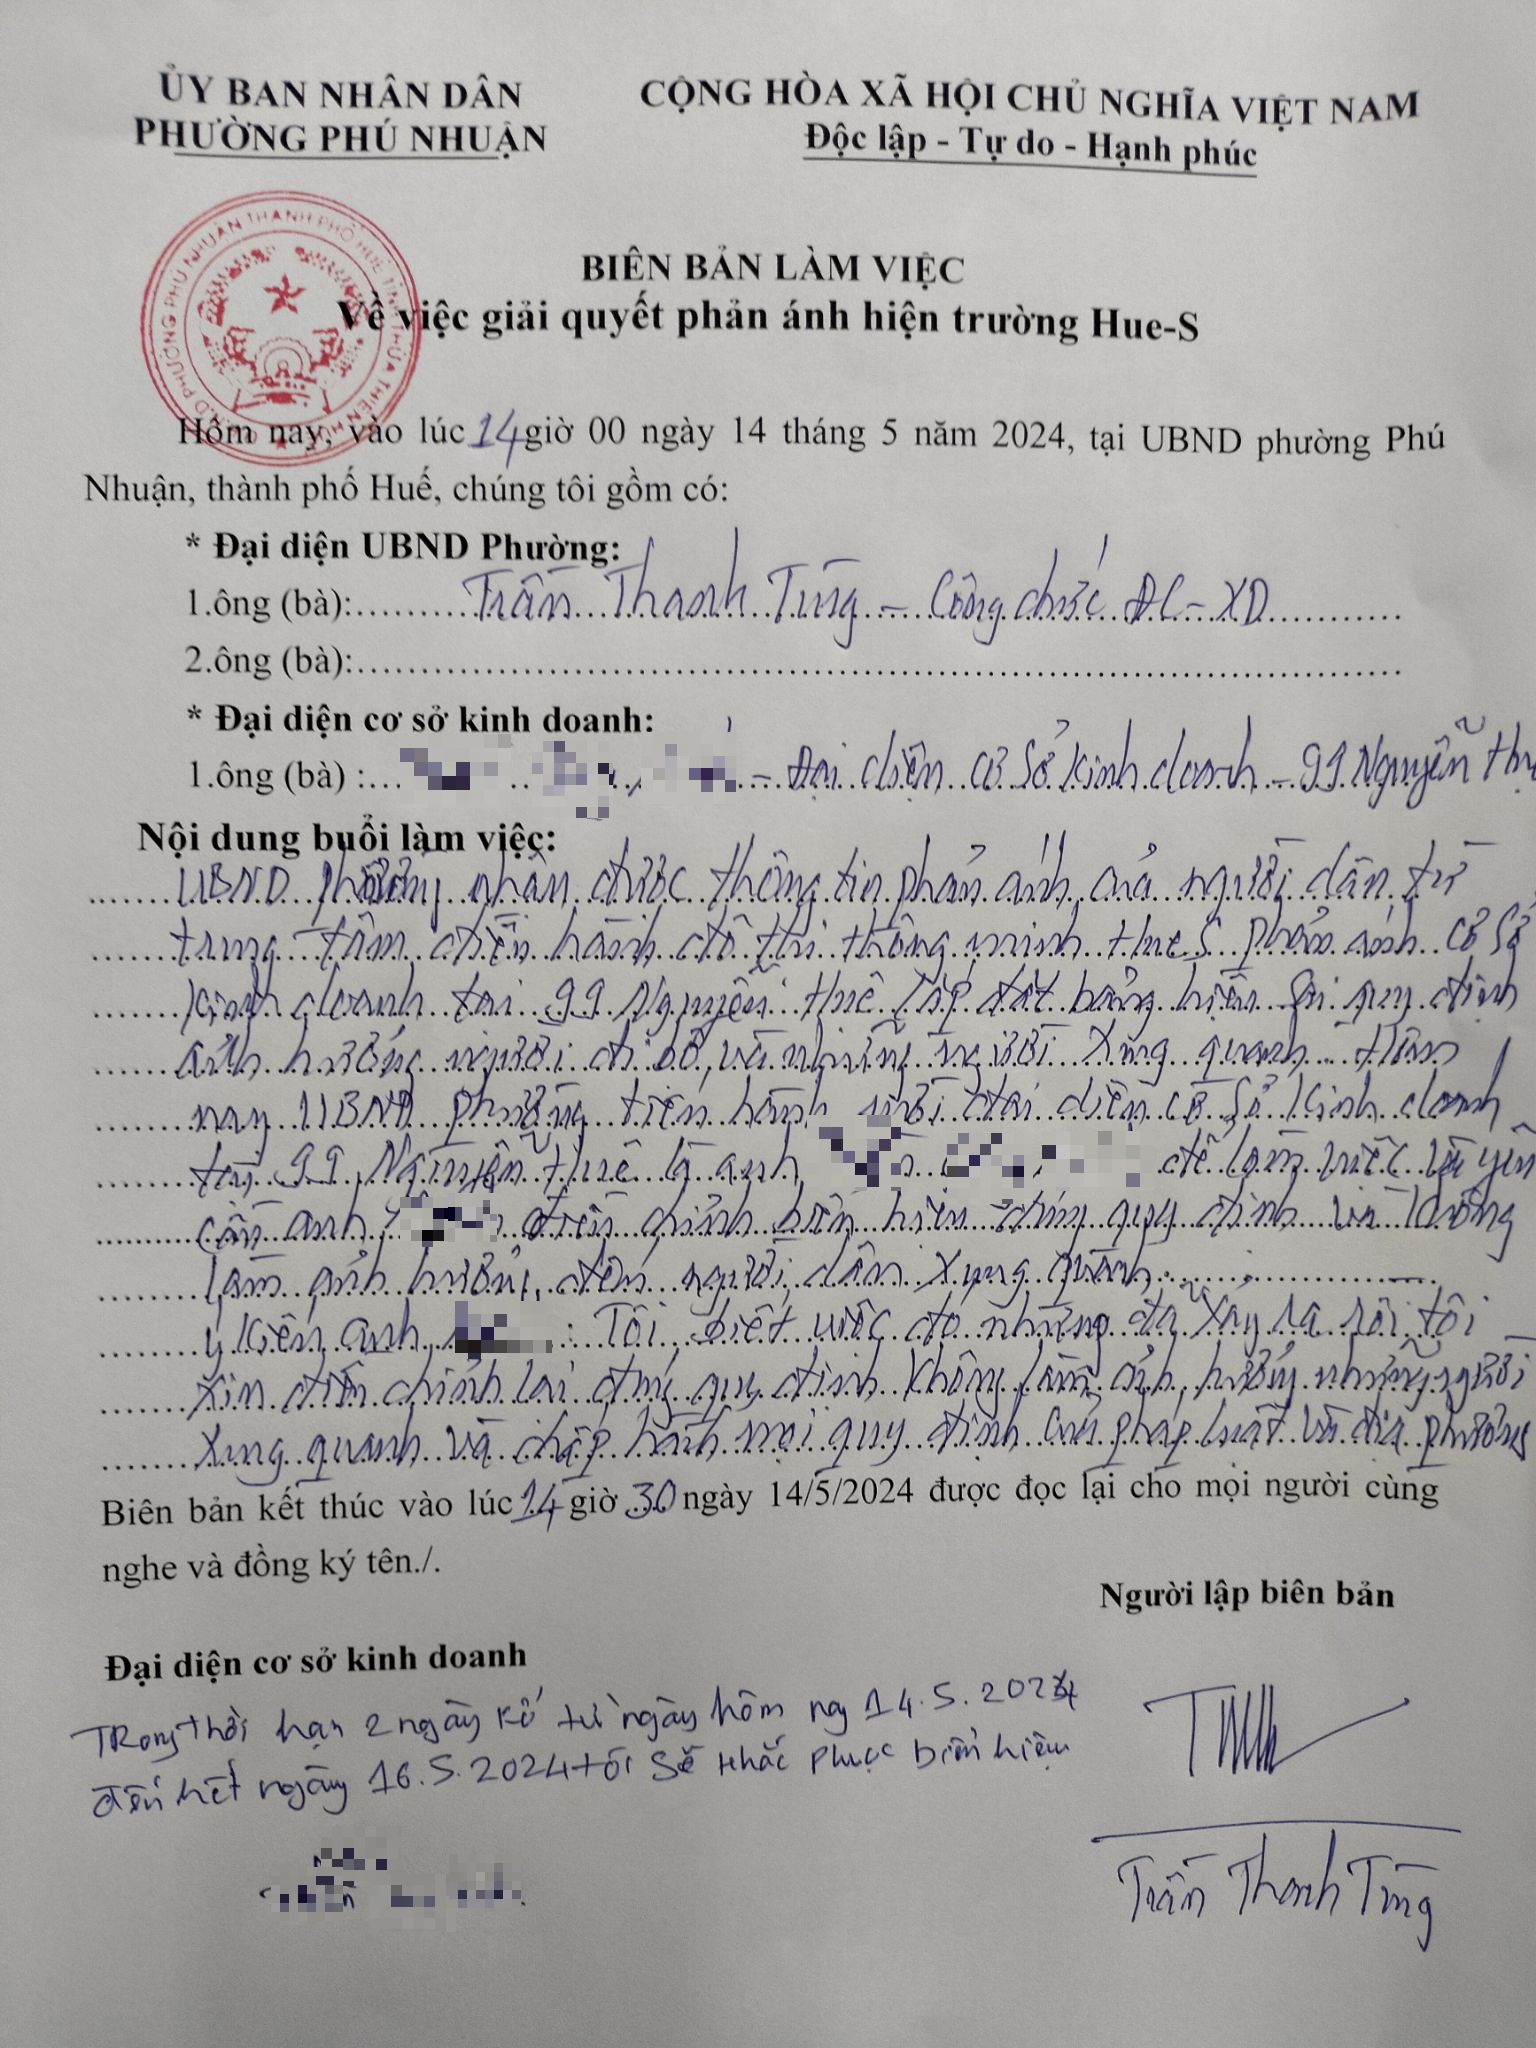 ỦY BAN NHÂN DÂN
PHƯỜNG PHÚ NHUẬN
CỘNG HÒA XÃ HỘI CHỦ NGHĨA VIỆT NAM
Độc lập - Tự do - Hạnh phúc
BIÊN BẢN LÀM VIỆC
Về việc giải quyết phản ánh hiện trường Hue-S
Hôm nay, vào lúc 14 giờ 00 ngày 14 tháng 5 năm 2024, tại UBND phường Phú
Nhuận, thành phố Huế, chúng tôi gồm có:
* Đại diện UBND Phường:
1.ông (bà): Trần Thanh Tùng - Công chức ĐC - XD
2.ông (bà):
* Đại diện cơ sở kinh doanh:
1.ông (bà) : - Đại diện cơ sở kinh doanh - 99 Nguyễn
Nội dung buổi làm việc:
UBND phường nhận được thông tin phản ánh của người dân từ
trung tâm điều hành đô thị thông minh Hue S phản ánh cơ sở
kinh doanh tại 99 Nguyễn Huệ lắp đặt bảng hiệu sai quy định
ảnh hưởng người đi bộ, và những người xung quanh. Hôm
nay UBND phường tiến hành mời đại diện cơ sở kinh doanh
tại 99 Nguyễn Huệ là anh để làm việc và yêu
cầu anh điều chỉnh biển hiệu đúng quy định và không
làm ảnh hưởng đến người dân xung quanh.
ý kiến anh : Tôi biết việc đó nhưng đã xảy ra rồi tôi
xin điều chỉnh lại đúng quy định không làm ảnh hưởng những người
xung quanh và chấp hành mọi quy định của pháp luật và địa phương
Biên bản kết thúc vào lúc 14 giờ 30 ngày 14/5/2024 được đọc lại cho mọi người cùng
nghe và đồng ký tên./.
Người lập biên bản
Đại diện cơ sở kinh doanh
TRong thời hạn 2 ngày kể từ ngày hôm nay 14.5.2024
đến hết ngày 16.5.2024 tôi sẽ khắc phục biển hiệu
Trần Thanh Tùng